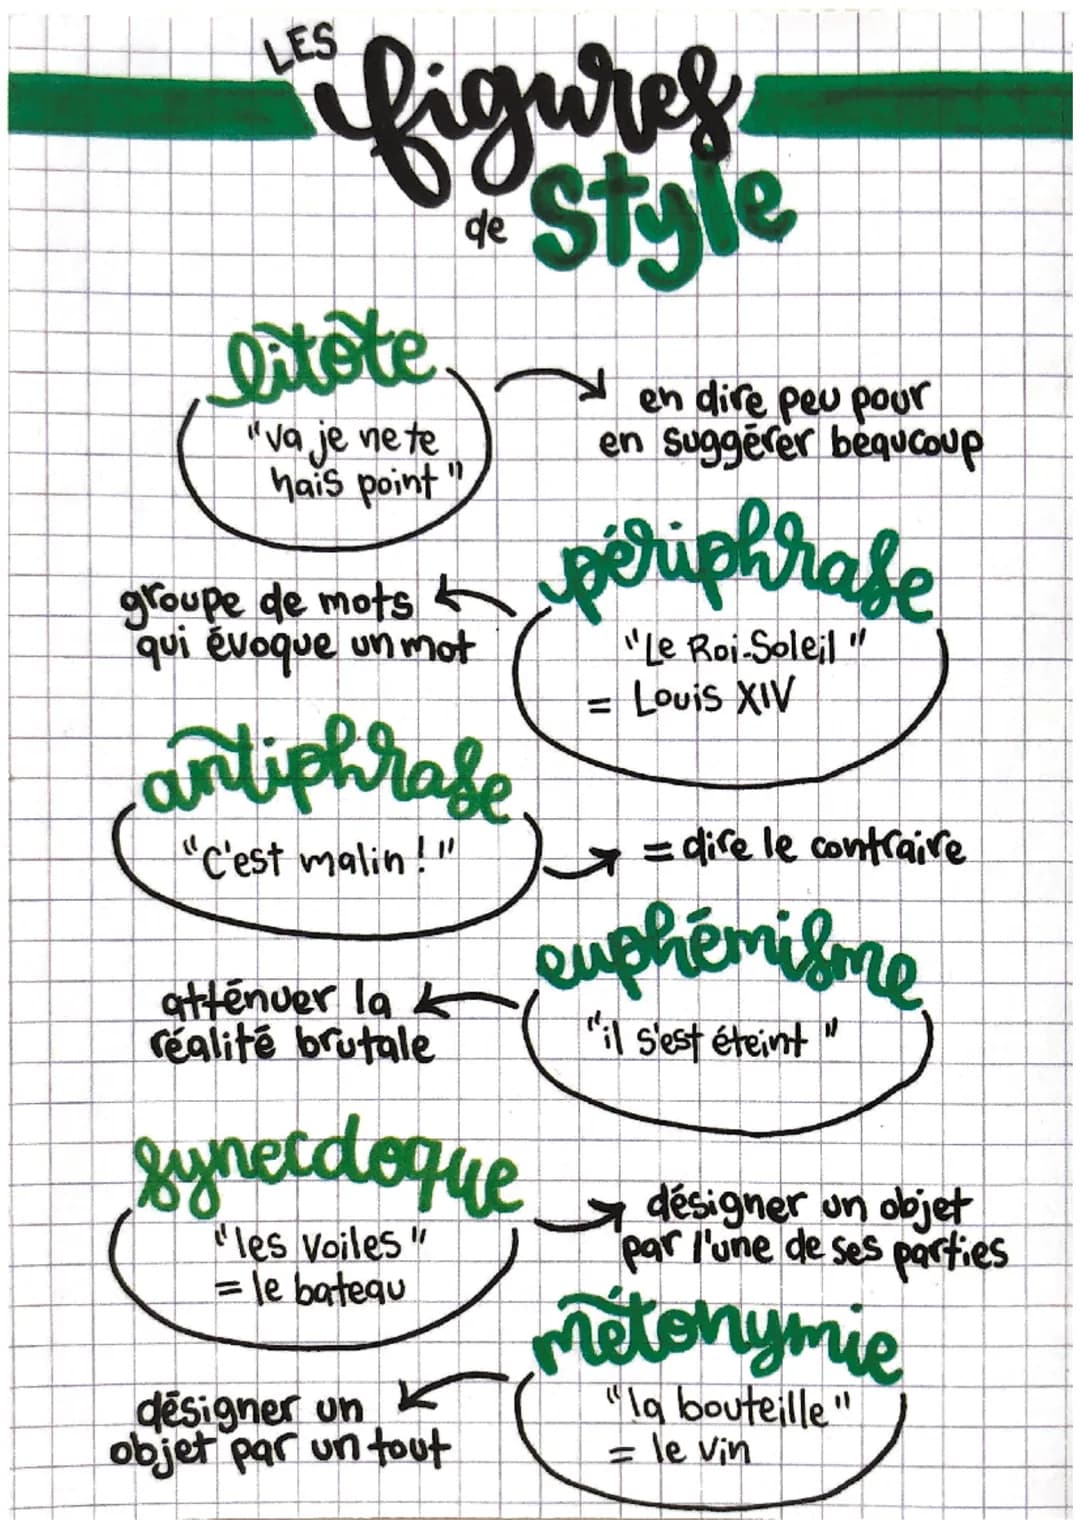 LES
figures
de style
litote
"va je ne te
hais point"
en dire peu pour
en suggérer beaucoup
périphrase
"Le Roi-Soleil"
= Louis XIV
groupe de mots
qui évoque un mot
antiphrase
"C'est malin !"
= dire le contraire
euphémisme
"il s'est éteint"
atténuer la
réalité brutale
synecdoque
"les voiles"
= le bateau
désigner un objet
par l'une de ses parties
métonymie
"la bouteille"
= le vin
désigner un
objet par un tout